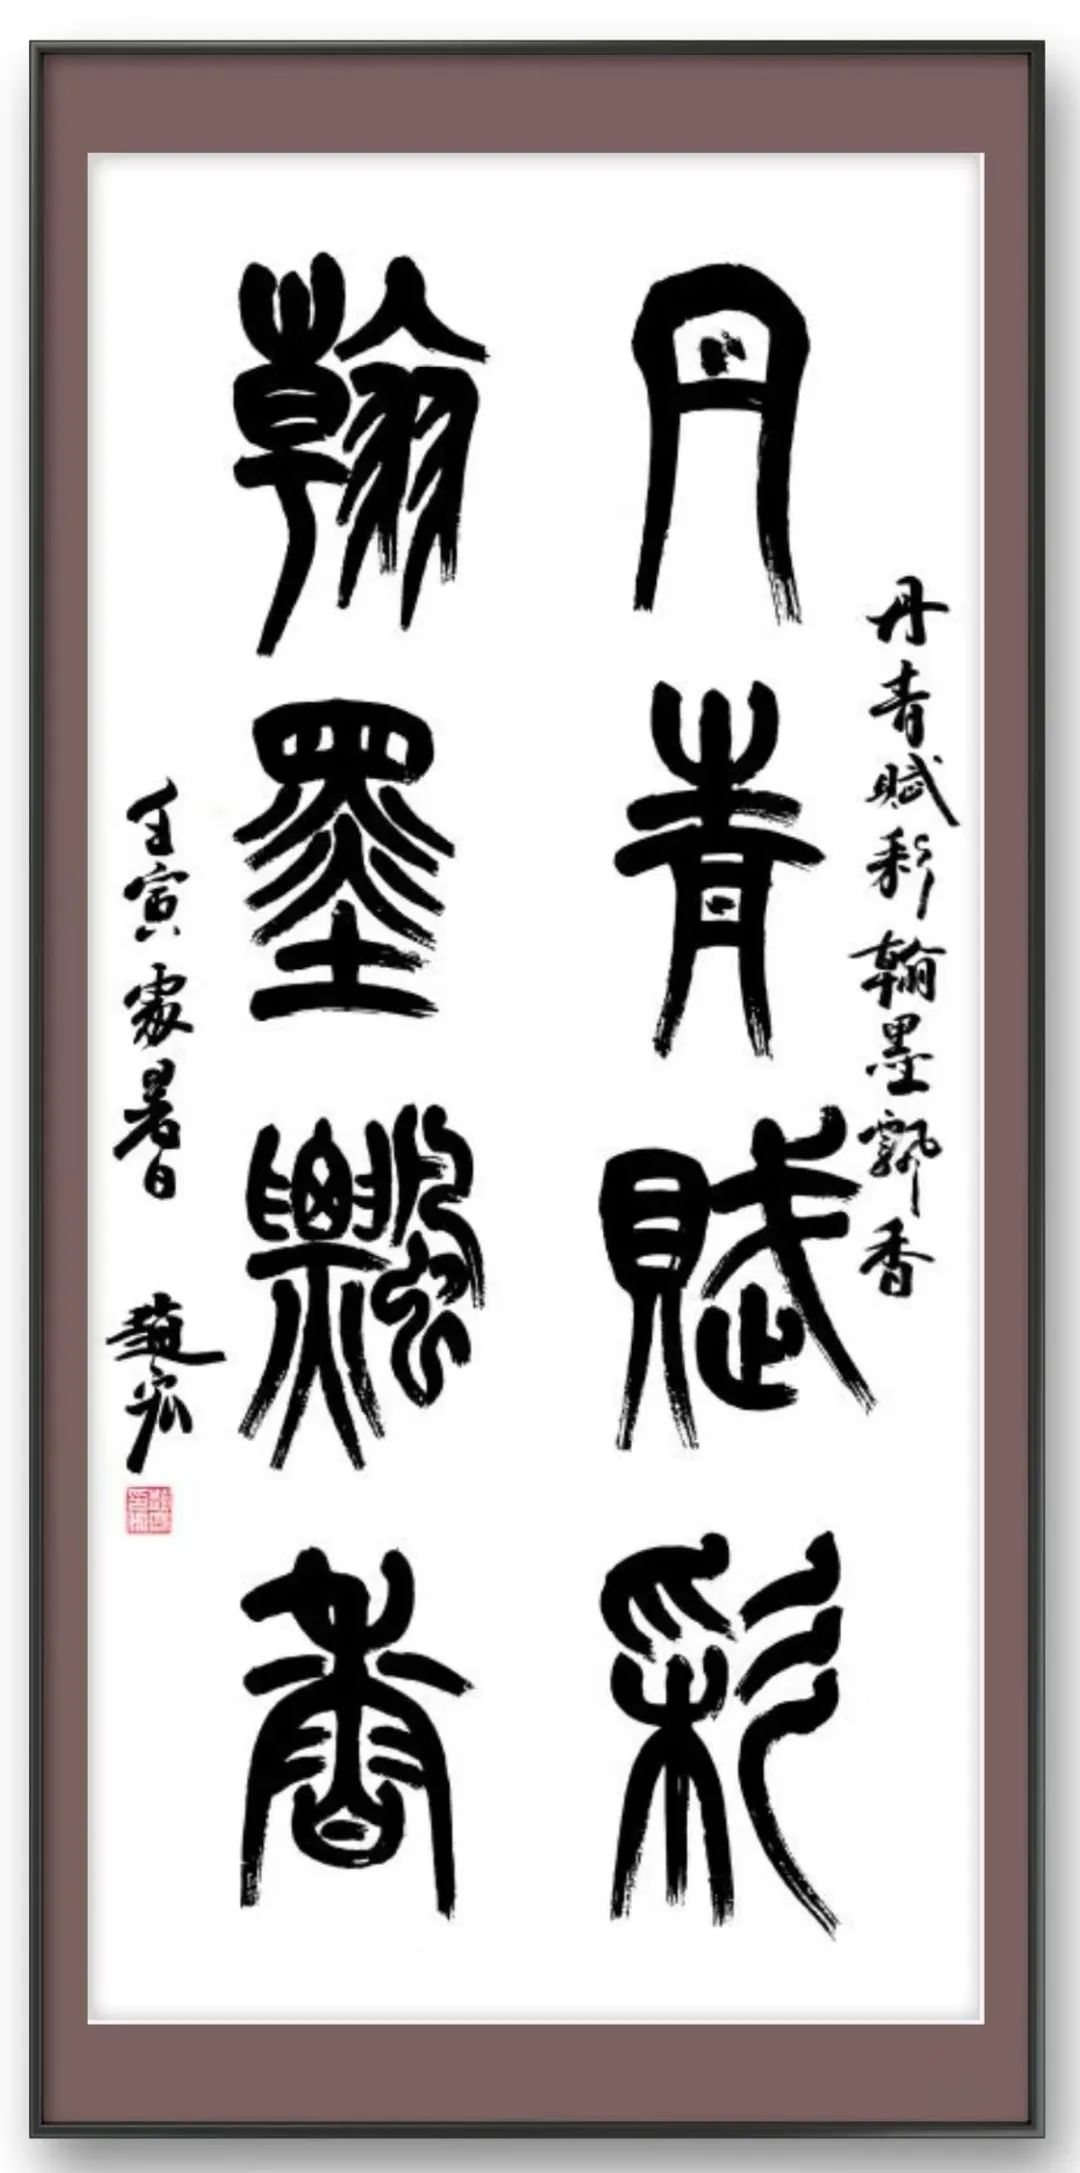 丹青賦彩
翰墨飄香
丹青賦彩翰墨飄香
壬寅處暑日 趙宏